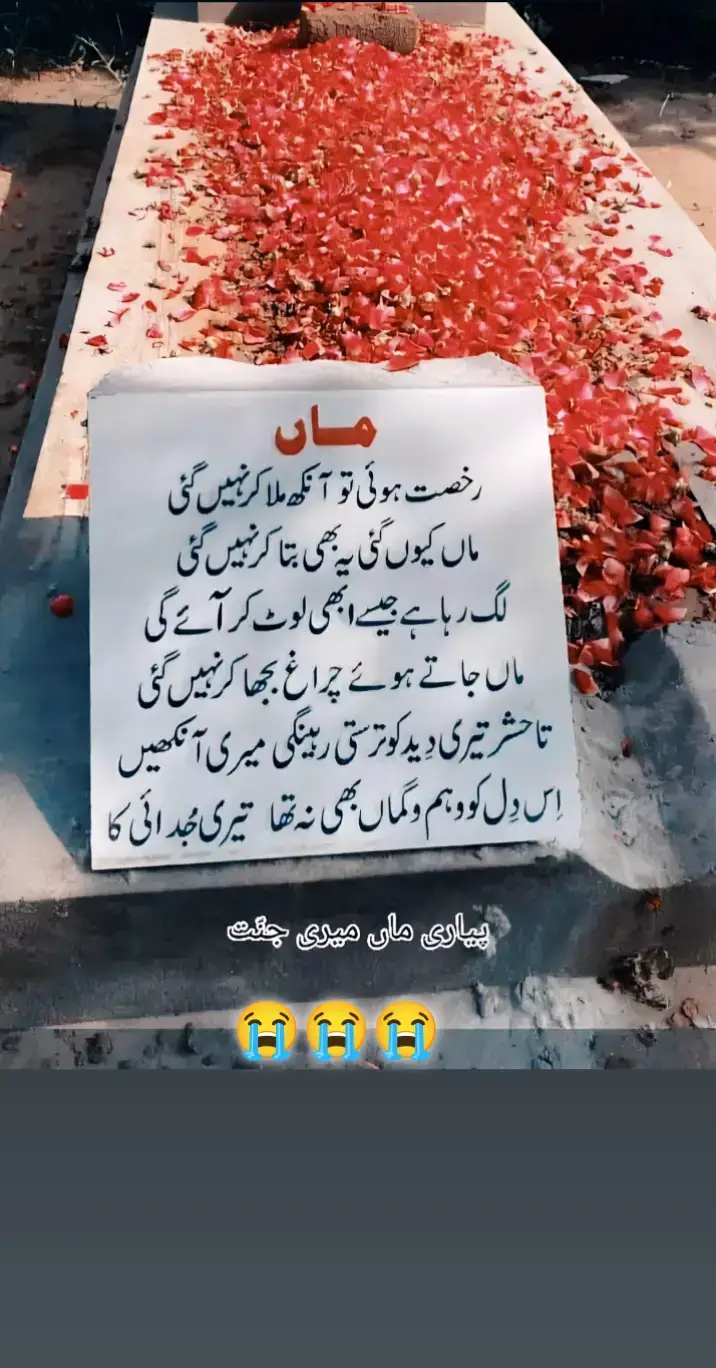 ماں
رخصت ہوئی تو آنکھ ملا کر نہیں گئی
ماں کیوں گئی یہ بھی بتا کر نہیں گئی
لگ رہا ہے جیسے ابھی لوٹ کر آئے گی
ماں جاتے ہوئے چراغ بجھا کر نہیں گئی
تا حشر تیری دِید کو ترستی رہینگی میری آنکھیں
اِس دِل کو وہم و گماں بھی نہ تھا تیری جُدائی کا
پیاری ماں میری جنّت
😭😭😭